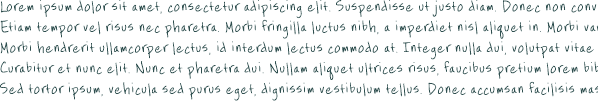 Lorem ipsum dolor sit amet, consectetur adipiscing elit. Suspendisse ut justo diam. Donec non conv
Etiam tempor vel risus nec pharetra. Morbi fringilla luctus nibh, a imperdiet nisl aliquet in. Morbi va
Morbi hendrerit ullamcorper lectus, id interdum lectus commodo at. Integer nulla dui, volutpat vitae
Curabitur et nunc elit. Nunc et pharetra dui. Nullam aliquet ultrices risus, faucibus pretium lorem bib
Sed tortor ipsum, vehicula sed purus eget, dignissim vestibulum tellus. Donec accumsan facilisis mas